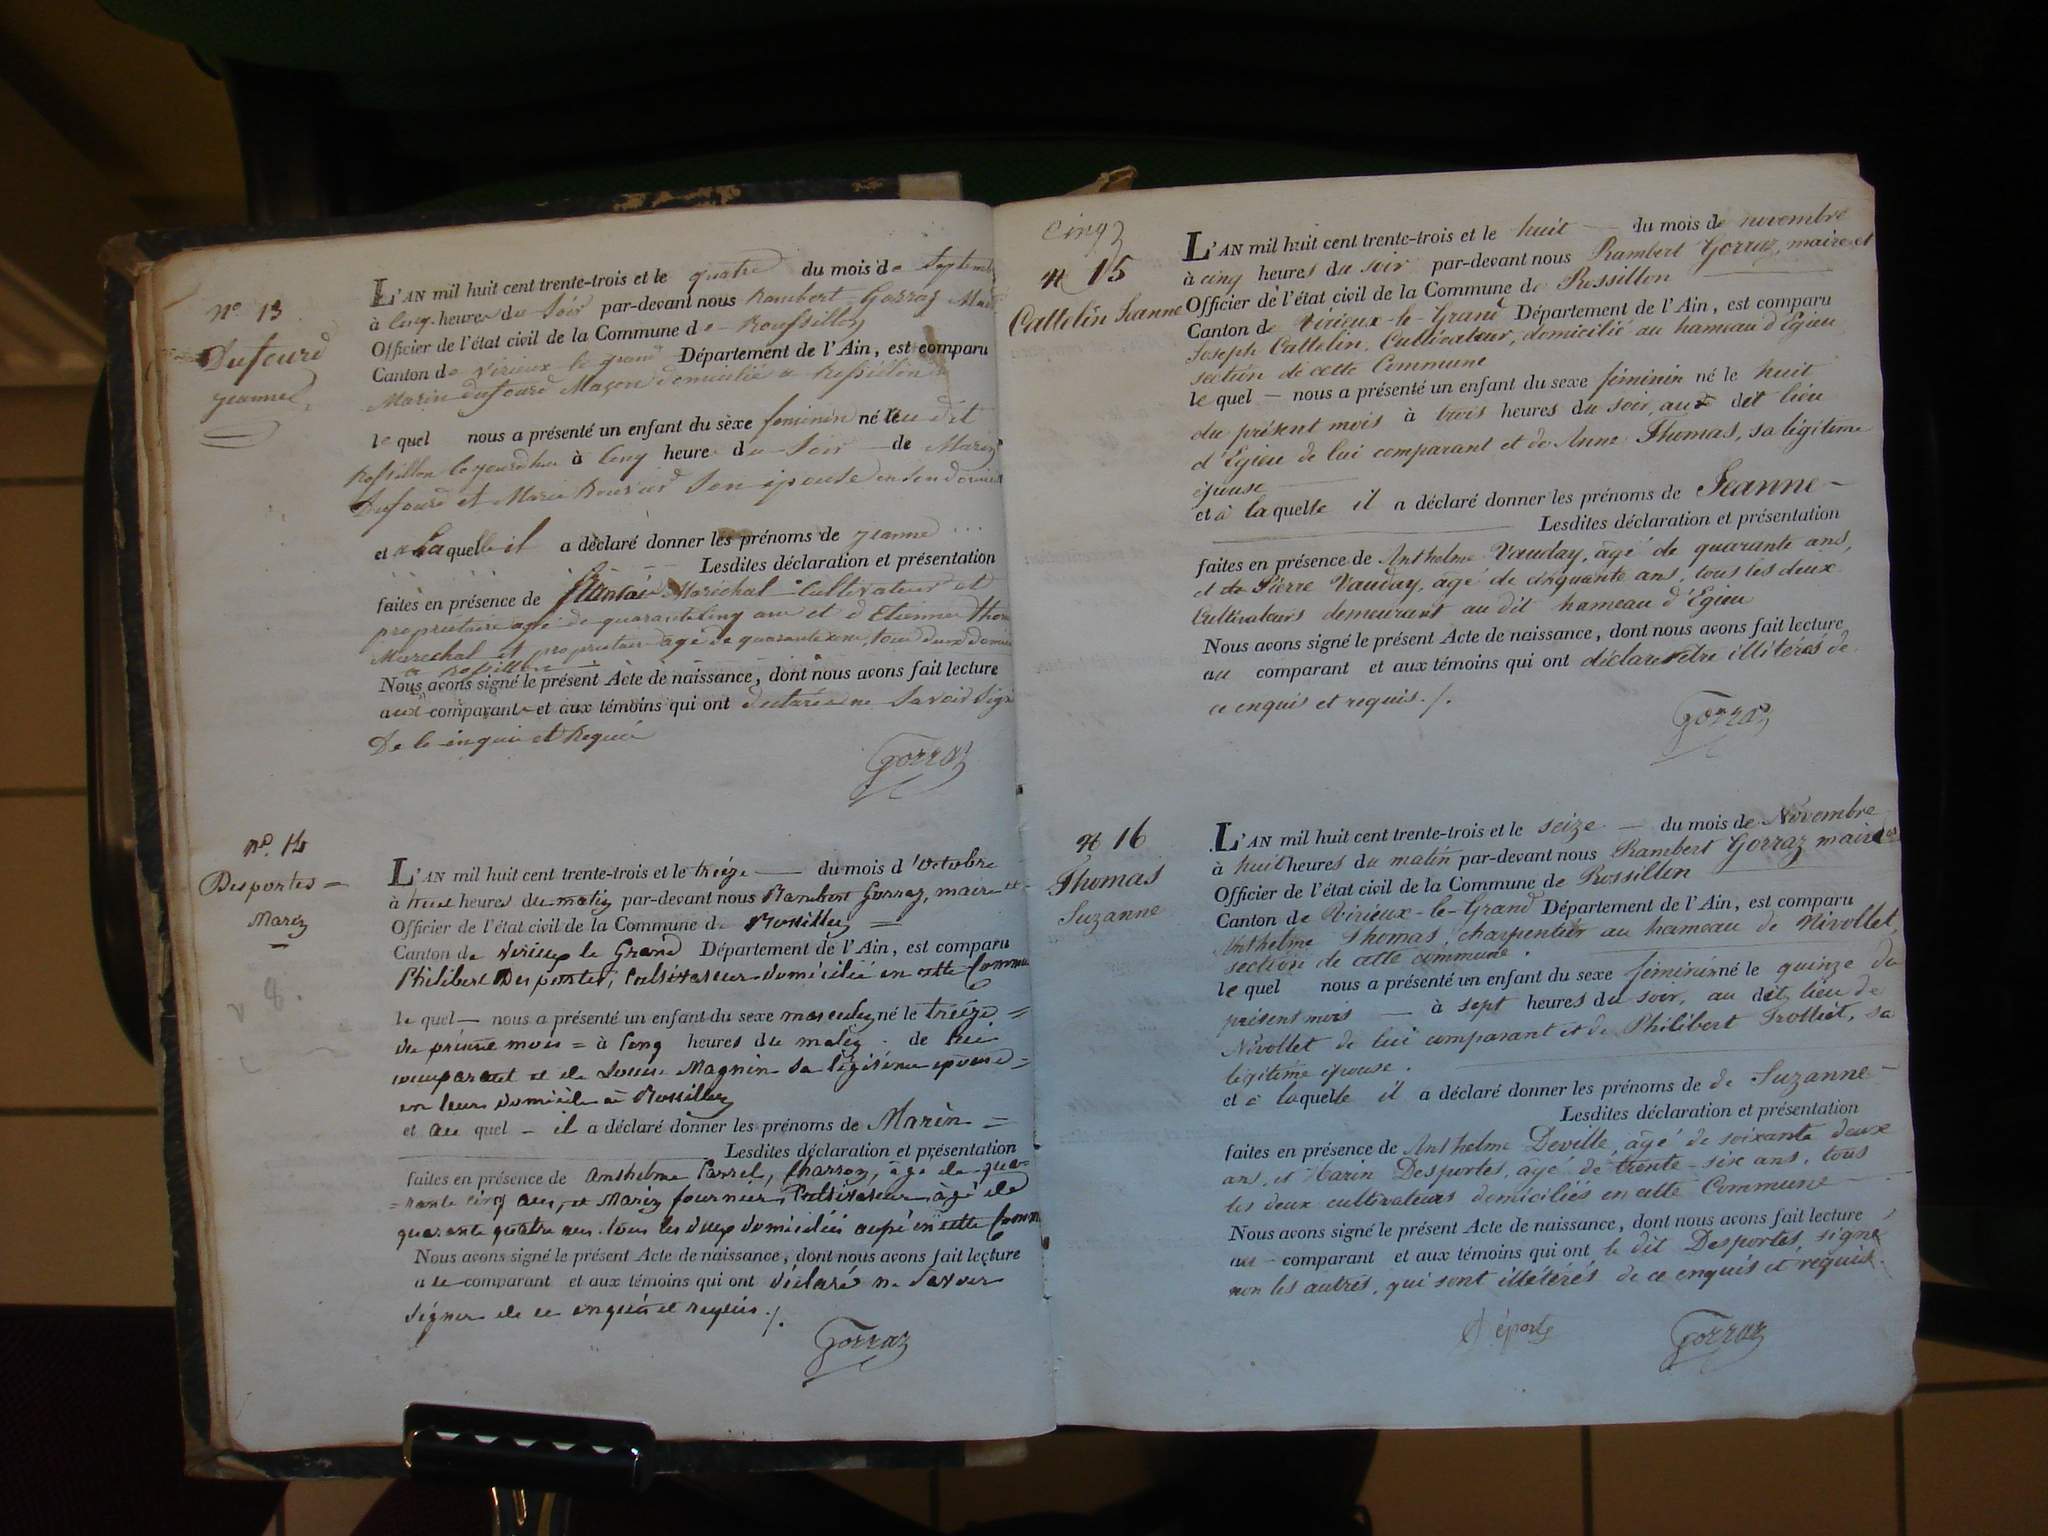 nº 13
Dufourd
jeanne
L'AN mil huit cent trente-trois et le quatre du mois de Septembre
à cinq heures du Soir par-devant nous Rambert Gorraz Mair
Officier de l'état civil de la Commune de Roussillon
Canton de Virieux le grand Département de l'Ain, est comparu
Marin dufourd Maçon domicilié a Rossillon
le quel nous a présenté un enfant du sèxe feminin né leu dit
Rossillon à cinq heures du Soir de Marin
Dufourd et Marie son épouse en
et a Laquelle il a déclaré donner les prénoms de jeanne
Lesdites déclaration et présentation
faites en présence de Maréchal Cultivateur et
proprietaire agé de quarante cinq ans et d Etienne thom
Marechal et proprietair agé de tous deux domi
a Rossillon
Nous avons signé le présent Acte de naissance, dont nous avons fait lecture
aux comparant et aux témoins qui ont declarés ne Savoir Sign
De ce enquis et Requis
Gorraz
nº. 14
Desportes =
Marin
L'AN mil huit cent trente-trois et le treize du mois d'octobre
à heures du matin par-devant nous Rambert Gorraz, maire et
Officier de l'état civil de la Commune de Rossillon =
Canton de Virieux le Grand Département de l'Ain, est comparu
Philibert Desportes, Cultivateur domicilié en cette Commu
le quel — nous a présenté un enfant du sexe masculin né le treize =
du présent mois = à cinq heures du matin de lui
comparant et de Louise Magnin sa légitime épouse =
en leur domicile à Rossillon
et au quel — il a déclaré donner les prénoms de Marin =
Lesdites déclaration et présentation
faites en présence de Anthelme Carrel, Charron, âgé de qua-
=rante cinq ans, et Marin fournier, Cultivateur âgé de
quarante quatre ans tous les deux domiciliés en cette Comm
Nous avons signé le présent Acte de naissance, dont nous avons fait lecture
au comparant et aux témoins qui ont déclaré ne savoir
signer de ce enquis et requis ./.
Gorraz
cinq
n 15
Cattelin Jeanne
L'AN mil huit cent trente-trois et le huit — du mois de novembre
à cinq heures du soir par-devant nous Rambert Gorraz, maire et
Officier de l'état civil de la Commune de Rossillon
Canton de Virieux-le-Grand Département de l'Ain, est comparu
Joseph Cattelin, Cultivateur, domicilié au hameau d'Egieu
section de cette Commune
le quel — nous a présenté un enfant du sexe féminin né le huit
du présent mois à trois heures du soir, au dit lieu
d'Egieu de lui comparant et de Anne Thomas, sa légitime
épouse
et à laquelle il a déclaré donner les prénoms de Jeanne —
Lesdites déclaration et présentation
faites en présence de Anthelme Vauday, âgé de quarante ans,
et de Pierre Vauday, agé de cinquante ans, tous les deux
Cultivateurs demeurant au dit hameau d'Egieu
Nous avons signé le présent Acte de naissance, dont nous avons fait lecture
au comparant et aux témoins qui ont déclaré être illitérés de
ce enquis et requis ./.
Gorraz
n 16
Thomas
Suzanne
L'AN mil huit cent trente-trois et le seize — du mois de Novembre
à huit heures du matin par-devant nous Rambert Gorraz maire et
Officier de l'état civil de la Commune de Rossillon
Canton de Virieux-le-Grand Département de l'Ain, est comparu
Anthelme Thomas, charpentier au hameau de Nivollet,
section de cette commune.
le quel nous a présenté un enfant du sexe féminin né le quinze du
présent mois — à sept heures du soir, au dit lieu de
Nivollet de lui comparant et de Philibert Trolliet, sa
légitime épouse.
et à laquelle il a déclaré donner les prénoms de de Suzanne —
Lesdites déclaration et présentation
faites en présence de Anthelme Deville, âgé de soixante deux
ans, et Marin Desportes, âgé de trente-six ans, tous
les deux cultivateurs domiciliés en cette Commune
Nous avons signé le présent Acte de naissance, dont nous avons fait lecture
au comparant et aux témoins qui ont le dit Desportes signé
non les autres, qui sont illétérés de ce enquis et requis.
Gorraz